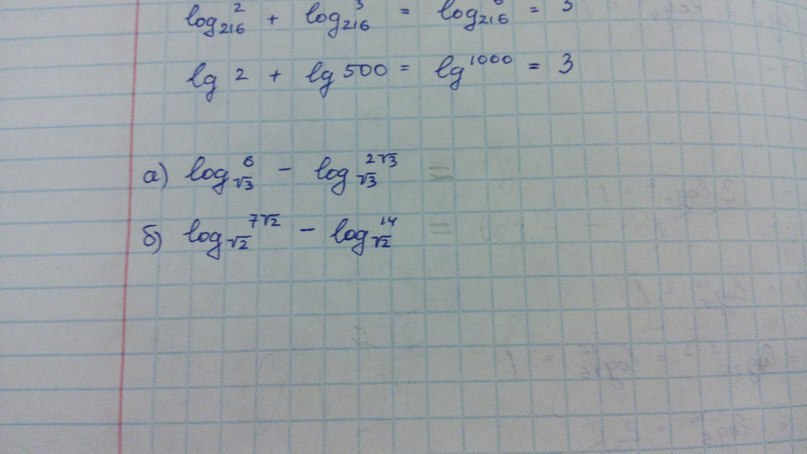 log₂₁₆ 2 + log₂₁₆ 3 = log₂₁₆ 6 = 3
lg 2 + lg 500 = lg 1000 = 3
а) log_√3 6 - log_√3 2√3 =
б) log_√2 7√2 - log_√2 14 =